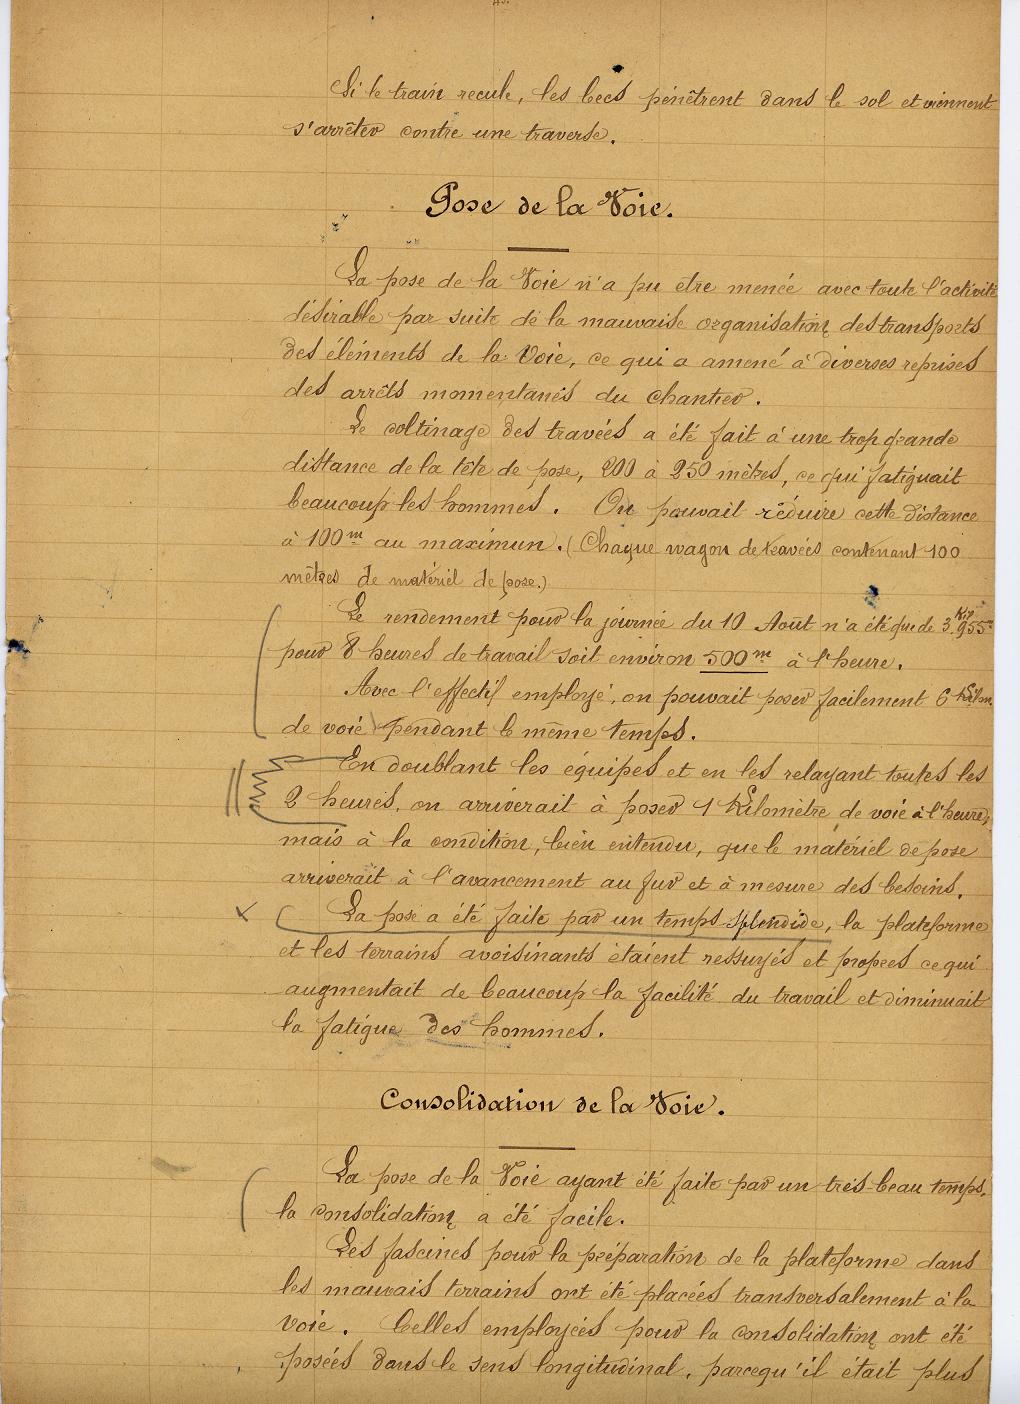 Si le train recule, les becs pénètrent dans le sol et viennent
s'arrêter contre une traverse.
Pose de la Voie.
La pose de la Voie n'a pu être menée avec toute l'activité
désirable par suite de la mauvaise organisation des transports
des éléments de la Voie, ce qui a amené à diverses reprises
des arrêts momentanés du chantier.
Le coltinage des travées a été fait à une trop grande
distance de la tête de pose, 200 à 250 mètres, ce qui fatiguait
beaucoup les hommes. On pouvait réduire cette distance
à 100m au maximun. (Chaque wagon de travées contenant 100
mètres de matériel de pose.)
Le rendement pour la journée du 10 Août n'a été que de 3.Km955m
pour 8 heures de travail soit environ 500m à l'heure.
Avec l'effectif employé, on pouvait poser facilement 6 Kilom.
de voie pendant le même temps.
En doublant les équipes et en les relayant toutes les
2 heures, on arriverait à poser 1 Kilomètre de voie à l'heure,
mais à la condition, bien entendu, que le matériel de pose
arriverait à l'avancement au fur et à mesure des besoins.
La pose a été faite par un temps splendide, la plateforme
et les terrains avoisinants étaient ressuyés et propres ce qui
augmentait de beaucoup la facilité du travail et diminuait
la fatigue des hommes.
Consolidation de la Voie.
La pose de la Voie ayant été faite par un très-beau temps,
la consolidation a été facile.
Les fascines pour la préparation de la plateforme dans
les mauvais terrains ont été placées transversalement à la
voie. Celles employées pour la consolidation ont été
posées dans le sens longitudinal, parcequ'il était plus